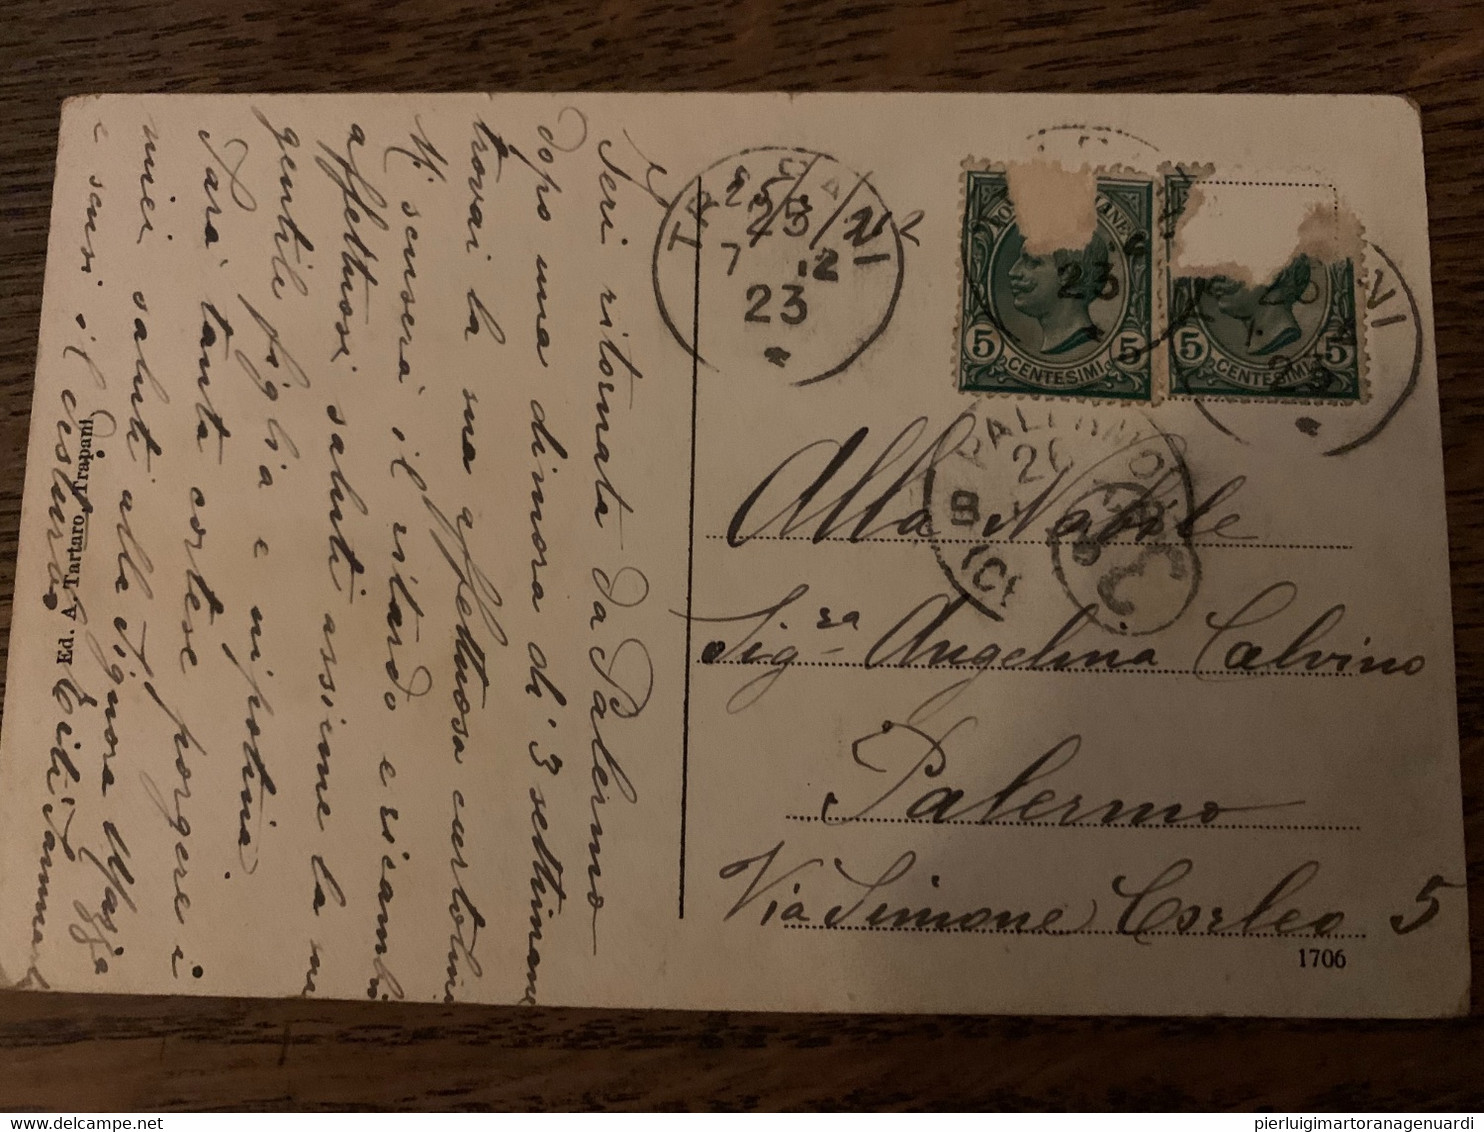 25/2/22
Ieri ritornata da Palermo
dopo una dimora di 3 settimane
trovai la sua affettuosa cartolina
Mi scuserà il ritardo e ricambi
affettuosi saluti assieme la su
gentile figlia e nipotina
Sarà tanto cortese porgere i
miei saluti alla Signora
e scusi il disturbo
Ed. A. Tartaro, Trapani
TRAPANI
23
7 .12
23
5 CENTESIMI 5
5 CENTESIMI 5
PALERMO
Alla Nobile
Sig.ra Angelina Calvino
Palermo
Via Simone Corleo 5
1706
pierluigimartoranagenuardi